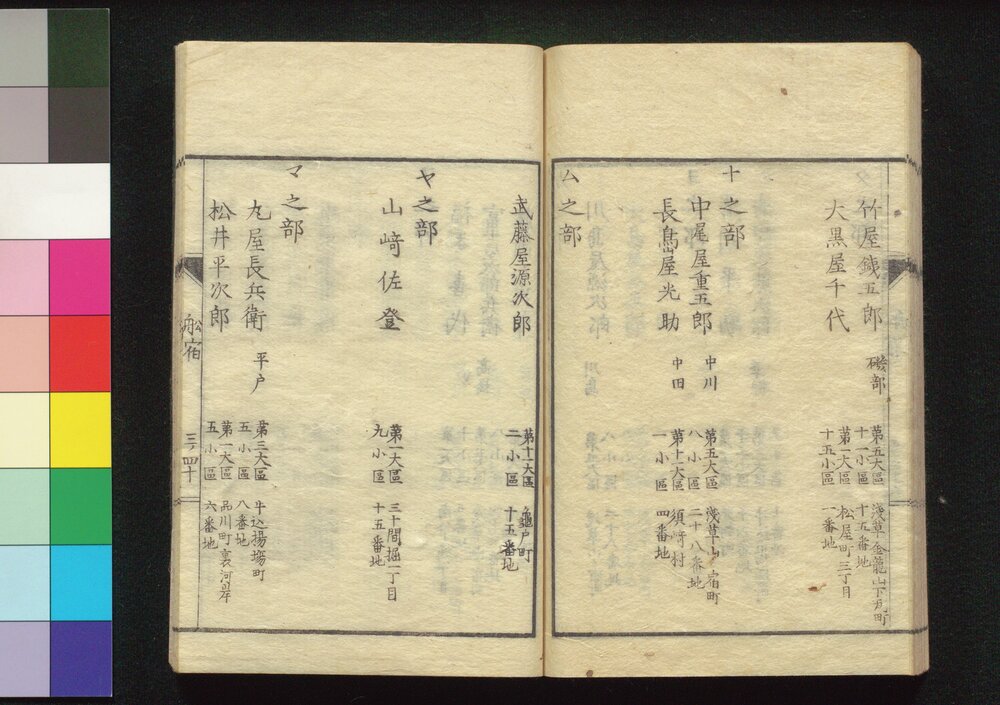 竹屋鐵五郎 磯部 第五大區十一小區 淺草金龍山下瓦町十五番地
大黒屋千代 第一大區十五小區 松屋町三丁目一番地
ナ之部
中尾屋重五郎 中川 第五大區八小區 淺草山ノ宿町二十八番地
長島屋光助 中田 第十一大區一小區 須﨑村四番地
ム之部
武藤屋源次郎 第十一大區二小區 龜戸町十五番地
ヤ之部
山﨑佐登 第一大區九小區 三十間堀一丁目十五番地
マ之部
丸屋長兵衛 平戸 第三大區五小區 牛込揚場町八番地
松井平次郎 第一大區五小區 品川町裏河岸六番地
船宿
三ノ四十